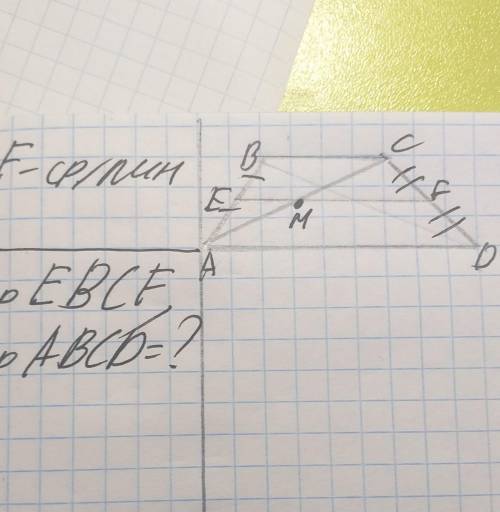 F-ср/лин
EBCF
ABCD=?
B
C
E
F
M
A
D